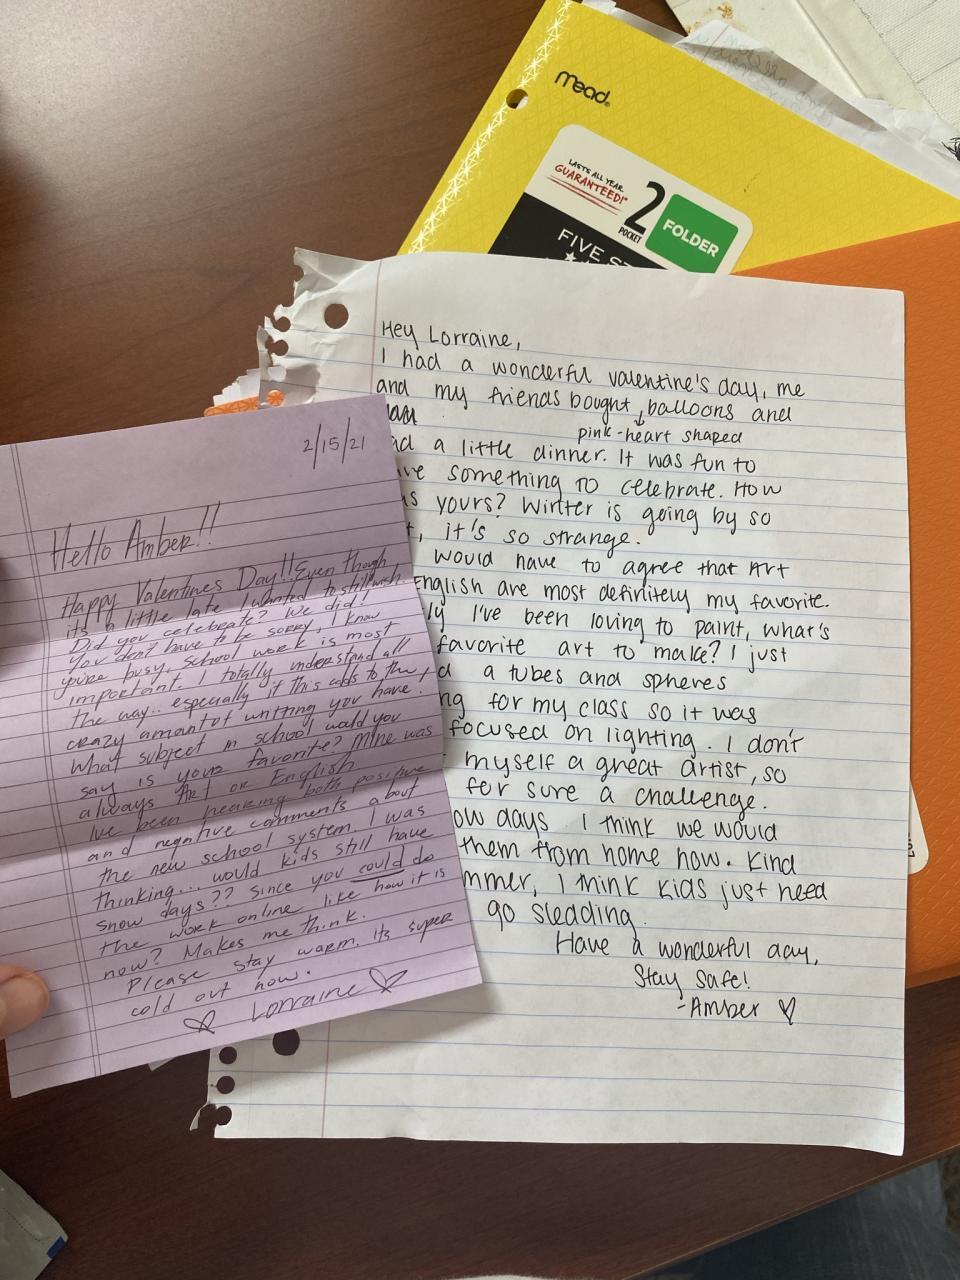 mead
LASTS ALL YEAR.
GUARANTEED!*
2
POCKET
FOLDER
FIVE ST
Hey Lorraine,
I had a wonderful valentine's day, me
and my friends bought balloons and
pink-heart shaped
a little dinner. It was fun to
something to celebrate. How
yours? Winter is going by so
it's so strange.
would have to agree that Art
English are most definitely my favorite.
I've been loving to paint, what's
favorite art to make? I just
a tubes and spheres
for my class so it was
focused on lighting. I don't
myself a great artist, so
for sure a challenge.
ow days. I think we would
them from home now. Kind
mmer, I think kids just need
go sledding.
Have a wonderful day,
Stay Safe!
-Amber
2/15/21
Hello Amber!!
Happy Valentines Day!! Even though
its a little late I wanted to still wish
Did you celebrate? We did!
You don't have to be sorry, I know
you're busy, school work is most
important. I totally understand all
the way.. especially if this adds to the
crazy amount of writting you have!
What subject in school would you
say is your favorite? Mine was
always Art or English
Ive been hearing both positive
and negitive comments about
the new school system. I was
thinking... would kids still have
snow days?? Since you could do
the work online like how it is
now? Makes me think.
Please stay warm. its super
cold out now.
Lorraine